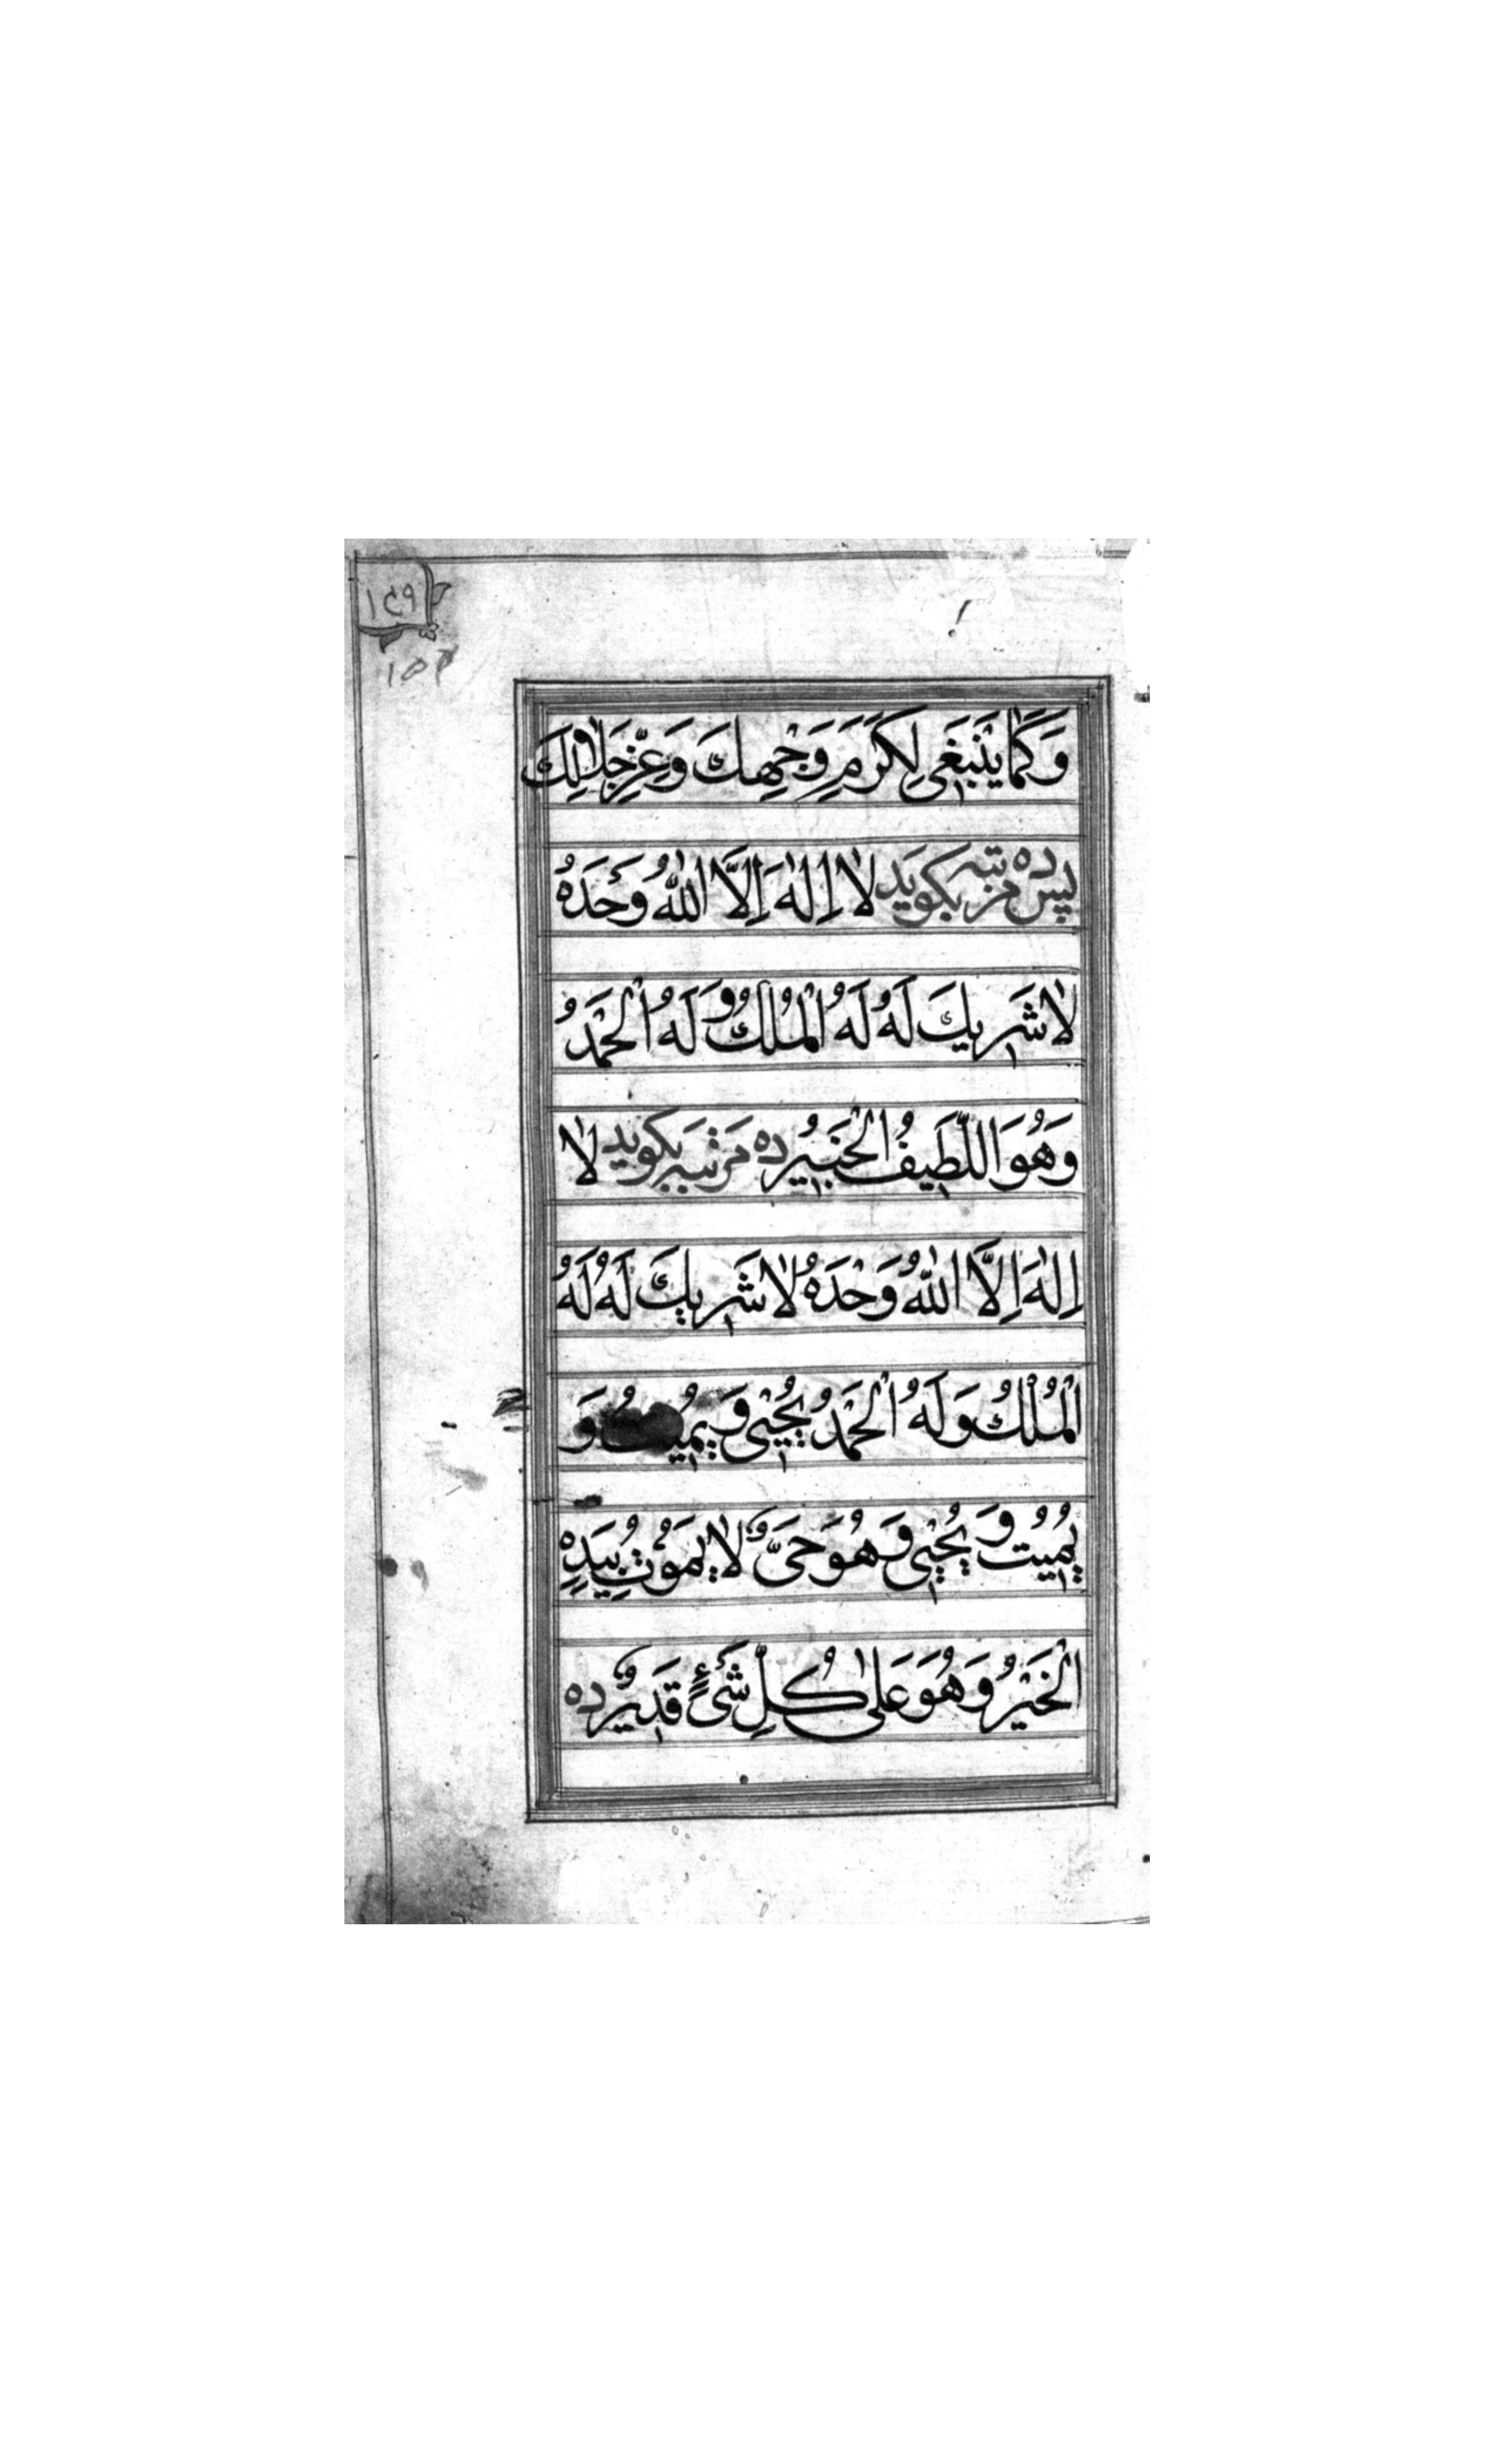 ١٤٩
١٥٢
وَكَمٰا يَنْبَغَى لِكَرَمِ وَجْهِكَ وَعِزِّ جَلٰالِكَ
پس ده مرتبه بكويد لٰا اِلٰهَ اِلَّا اللّٰهُ وَحْدَهُ
لٰا شَرِيكَ لَهُ لَهُ الْمُلْكُ وَلَهُ الْحَمْدُ
وَهُوَ اللَّطِيفُ الْخَبِيرُ ده مَرتبه بَكويد لٰا
اِلٰهَ اِلَّا اللّٰهُ وَحْدَهُ لٰا شَرِيكَ لَهُ لَهُ
الْمُلْكُ وَلَهُ الْحَمْدُ يُحْيٖى وَيُمٖيتُ وَ
يُمٖيتُ وَيُحْيٖى وَهُوَ حَىٌّ لٰا يَمُوْتُ بِيَدِهِ
الْخَيْرُ وَهُوَ عَلٰى كُلِّ شَىْءٍ قَدٖيرٌ ده